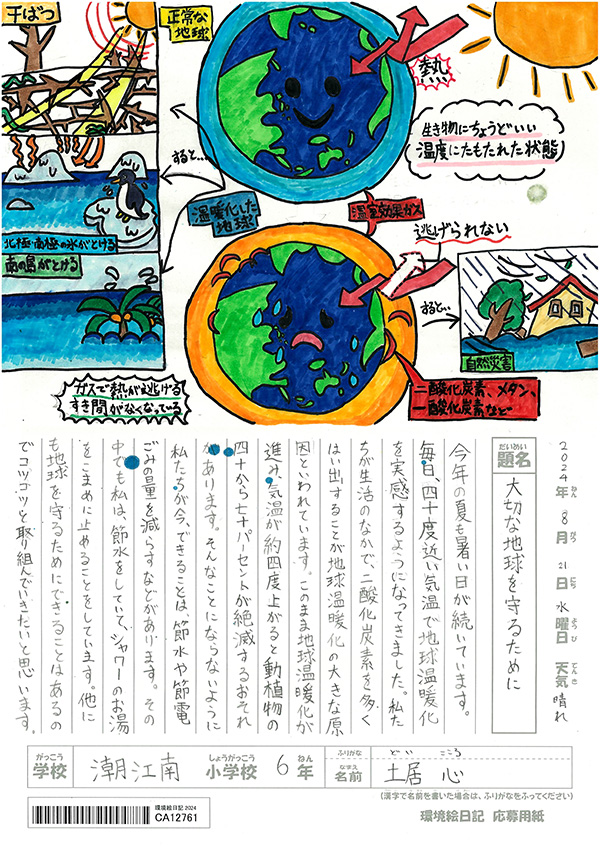 干ばつ
正常な
地球
熱
生き物にちょうどいい
温度にたもたれた状態
すると…
温暖化した
地球
温室効果ガス
逃げられない
北極・南極の氷がとける
南の島がとける
すると…
自然災害
ガスで熱が逃げる
すき間がなくなっている
二酸化炭素、メタン、
一酸化炭素など
2024年ねん8月がつ21日にち水曜日ようび 天気てんき 晴れ
だいめい
題名
大切な地球を守るために
今年の夏も暑い日が続いています。
毎日、四十度近い気温で地球温暖化
を実感するようになってきました。私た
ちが生活のなかで、二酸化炭素を多く
はい出することが地球温暖化の大きな原
因といわれています。このまま地球温暖化が
進み、気温が約四度上がると動植物の
四十から七十パーセントが絶滅するおそれ
があります。そんなことにならないように
私たちが今、できることは、節水や節電
ごみの量を減らすなどがあります。その
中でも私は、節水をしていて、シャワーのお湯
をこまめに止めることをしています。他に
も地球を守るためにできることはあるの
でコツコツと取り組んでいきたいと思います。
がっこう しょうがっこう ねん ふりがな どい こころ
学校 潮江南 小学校 6年 なまえ 名前 土居 心
(漢字で名前を書いた場合は、ふりがなをふってください)
環境絵日記 2024
CA12761
環境絵日記 応募用紙